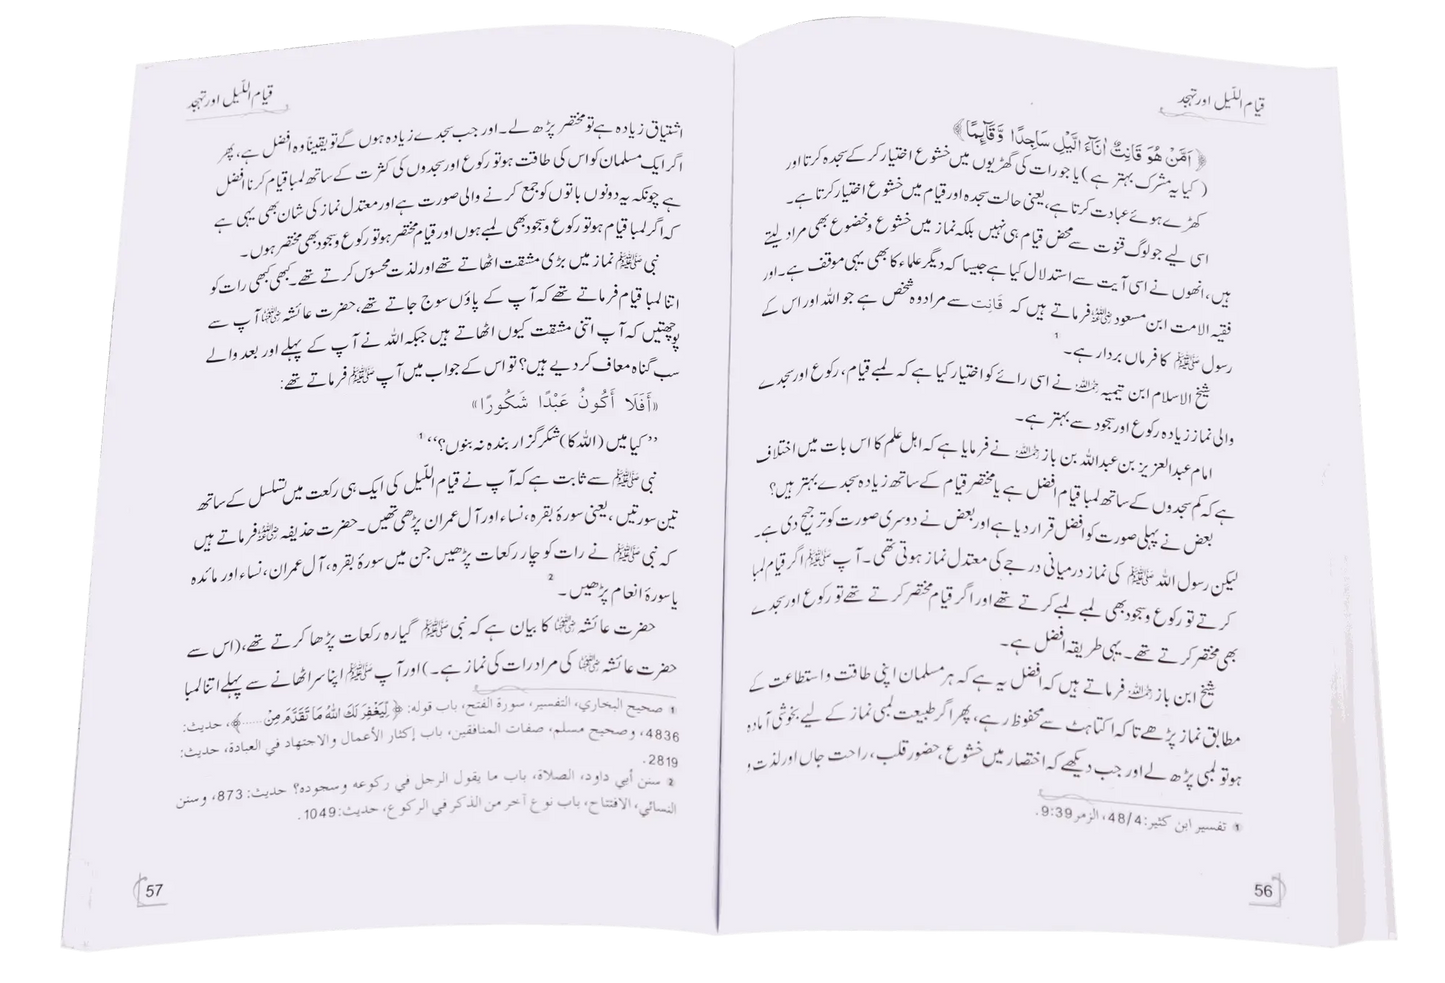 قیام اللّیل اور تہجد
﴿ اَمَّنْ هُوَ قَانِتٌ اٰنَآءَ الَّيْلِ سَاجِدًا وَّقَآىِٕمًا﴾
(کیا یہ مشرک بہتر ہے) یا جو رات کی گھڑیوں میں خشوع اختیار کر کے سجدہ کرتا اور
کھڑے ہوئے عبادت کرتا ہے، یعنی حالت سجدہ اور قیام میں خشوع اختیار کرتا ہے۔
اسی لیے جو لوگ قنوت سے محض قیام ہی نہیں بلکہ نماز میں خشوع و خضوع بھی مراد لیتے
ہیں، انھوں نے اسی آیت سے استدلال کیا ہے جیسا کہ دیگر علماء کا بھی یہی موقف ہے۔ اور
فقیہ الامت ابن مسعود رضی اللہ عنہ فرماتے ہیں کہ قَانِت سے مراد وہ شخص ہے جو اللہ اور اس کے
رسول ﷺ کا فرماں بردار ہے۔ 1
شیخ الاسلام ابن تیمیہ رحمہ اللہ نے اسی رائے کو اختیار کیا ہے کہ لمبے قیام، رکوع اور سجدے
والی نماز زیادہ رکوع اور سجود سے بہتر ہے۔
امام عبدالعزیز بن عبداللہ بن باز رحمہ اللہ نے فرمایا ہے کہ اہل علم کا اس بات میں اختلاف
ہے کہ کم سجدوں کے ساتھ لمبا قیام افضل ہے یا مختصر قیام کے ساتھ زیادہ سجدے بہتر ہیں؟
بعض نے پہلی صورت کو افضل قرار دیا ہے اور بعض نے دوسری صورت کو ترجیح دی ہے۔
لیکن رسول اللہ ﷺ کی نماز درمیانی درجے کی معتدل نماز ہوتی تھی۔ آپ ﷺ اگر قیام لمبا
کرتے تو رکوع و سجود بھی لمبے لمبے کرتے تھے اور اگر قیام مختصر کرتے تھے تو رکوع اور سجدے
بھی مختصر کرتے تھے۔ یہی طریقہ افضل ہے۔
شیخ ابن باز رحمہ اللہ فرماتے ہیں کہ افضل یہ ہے کہ ہر مسلمان اپنی طاقت و استطاعت کے
مطابق نماز پڑھے تاکہ اکتاہٹ سے محفوظ رہے، پھر اگر طبیعت لمبی نماز کے لیے بخوشی آمادہ
ہو تو لمبی پڑھ لے اور جب دیکھے کہ اختصار میں خشوع، حضور قلب، راحت جاں اور لذت و
① تفسير ابن كثير: 48/4، الزمر 9:39.
56
قیام اللّیل اور تہجد
اشتیاق زیادہ ہے تو مختصر پڑھ لے۔ اور جب سجدے زیادہ ہوں گے تو یقیناً وہ افضل ہے، پھر
اگر ایک مسلمان کو اس کی طاقت ہو تو رکوع اور سجدوں کی کثرت کے ساتھ لمبا قیام کرنا افضل
ہے چونکہ یہ دونوں باتوں کو جمع کرنے والی صورت ہے اور معتدل نماز کی شان بھی یہی ہے
کہ اگر لمبا قیام ہو تو رکوع و سجود بھی لمبے ہوں اور قیام مختصر ہو تو رکوع و سجود بھی مختصر ہوں۔
نبی ﷺ نماز میں بڑی مشقت اٹھاتے تھے اور لذت محسوس کرتے تھے۔ کبھی کبھی رات کو
اتنا لمبا قیام فرماتے تھے کہ آپ کے پاؤں سوج جاتے تھے، حضرت عائشہ رضی اللہ عنہا آپ سے
پوچھتیں کہ آپ اتنی مشقت کیوں اٹھاتے ہیں جبکہ اللہ نے آپ کے پہلے اور بعد والے
سب گناہ معاف کر دیے ہیں؟ تو اس کے جواب میں آپ ﷺ فرماتے تھے:
«أَفَلَا أَكُونُ عَبْدًا شَكُورًا»
’’کیا میں (اللہ کا) شکر گزار بندہ نہ بنوں؟‘‘ 1
نبی ﷺ سے ثابت ہے کہ آپ نے قیام اللّیل کی ایک ہی رکعت میں تسلسل کے ساتھ
تین سورتیں، یعنی سورۂ بقرہ، نساء اور آل عمران پڑھی تھیں۔ حضرت حذیفہ رضی اللہ عنہ فرماتے ہیں
کہ نبی ﷺ نے رات کو چار رکعات پڑھیں جن میں سورۂ بقرہ، آل عمران، نساء اور مائدہ
یا سورۂ انعام پڑھیں۔ 2
حضرت عائشہ رضی اللہ عنہا کا بیان ہے کہ نبی ﷺ گیارہ رکعات پڑھا کرتے تھے، (اس سے
حضرت عائشہ رضی اللہ عنہا کی مراد رات کی نماز ہے۔) اور آپ ﷺ اپنا سر اٹھانے سے پہلے اتنا لمبا
① صحيح البخاري، التفسير، سورة الفتح، باب قوله: ﴿لِيَغْفِرَ لَكَ اللّٰهُ مَا تَقَدَّمَ مِنْ......﴾، حديث:
4836، وصحيح مسلم، صفات المنافقين، باب إكثار الأعمال والاجتهاد في العبادة، حديث:
2819.
② سنن أبي داود، الصلاة، باب ما يقول الرجل في ركوعه وسجوده؟ حديث: 873، وسنن
النسائي، الافتتاح، باب نوع آخر من الذكر في الركوع، حديث: 1049.
57